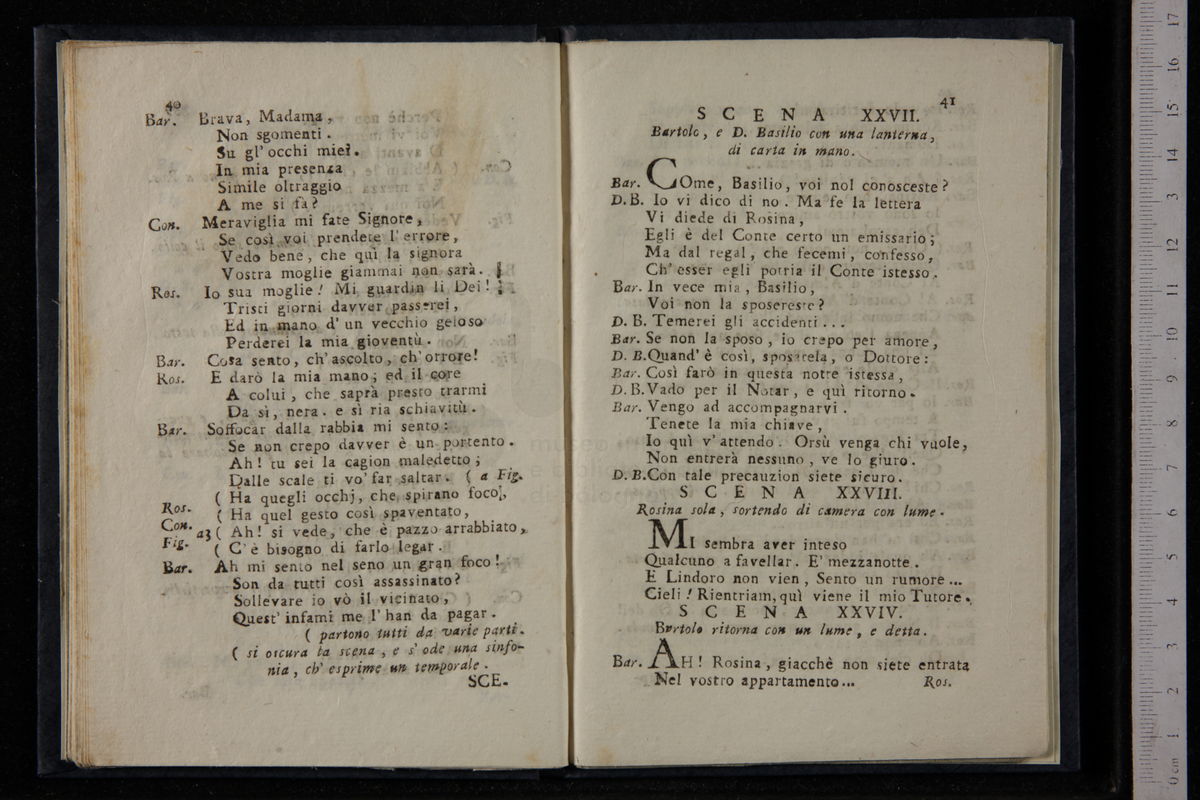 40
Bar. Brava, Madama,
Non sgomenti.
Su gl' occhi miei.
In mia presenza
Simile oltraggio
A me si fà?
Con. Meraviglia mi fate Signore,
Se così voi prendete l' errore,
Vedo bene, che quì la signora
Vostra moglie giammai non sarà.
Ros. Io sua moglie! Mi guardin li Dei!
Tristi giorni davver passerei,
Ed in mano d' un vecchio geloso
Perderei la mia gioventù.
Bar. Cosa sento, ch' ascolto, ch' orrore!
Ros. E darò la mia mano; ed il core
A colui, che saprà presto trarmi
Da sì, nera. e sì ria schiavitù.
Bar. Soffocar dalla rabbia mi sento:
Se non crepo davver è un portento.
Ah! tu sei la cagion maledetto;
Dalle scale ti vo' far saltar. ( a Fig.
( Ha quegli occhj, che spirano foco,
Ros. ( Ha quel gesto così spaventato,
Con. a3 ( Ah! si vede, che è pazzo arrabbiato,
Fig. ( C' è bisogno di farlo legar.
Bar. Ah mi sento nel seno un gran foco!
Son da tutti così assassinato?
Sollevare io vò il vicinato,
Quest' infami me l' han da pagar.
( partono tutti da varie parti.
( si oscura la scena, e s' ode una sinfo-
nia, ch' esprime un temporale.
SCE-
41
SCENA XXVII.
Bartolo, e D. Basilio con una lanterna,
di carta in mano.
Bar. COme, Basilio, voi nol conosceste?
D.B. Io vi dico di no. Ma fe la lettera
Vi diede di Rosina,
Egli è del Conte certo un emissario;
Ma dal regal, che fecemi, confesso,
Ch' esser egli potria il Conte istesso.
Bar. In vece mia, Basilio,
Voi non la sposereste?
D. B. Temerei gli accidenti...
Bar. Se non la sposo, io crepo per amore,
D. B. Quand' è così, sposatela, o Dottore:
Bar. Così farò in questa notte istessa,
D.B. Vado per il Notar, e quì ritorno.
Bar. Vengo ad accompagnarvi.
Tenete la mia chiave,
Io quì v' attendo. Orsù venga chi vuole,
Non entrerà nessuno, ve lo giuro.
D.B. Con tale precauzion siete sicuro.
SCENA XXVIII.
Rosina sola, sortendo di camera con lume.
MI sembra aver inteso
Qualcuno a favellar. E' mezzanotte.
E Lindoro non vien, Sento un rumore...
Cieli! Rientriam, quì viene il mio Tutore.
SCENA XXVIV.
Bartolo ritorna con un lume, e detta.
Bar. AH! Rosina, giacchè non siete entrata
Nel vostro appartamento...
Ros.
0 cm 1 2 3 4 5 6 7 8 9 10 11 12 13 14 15 16 17